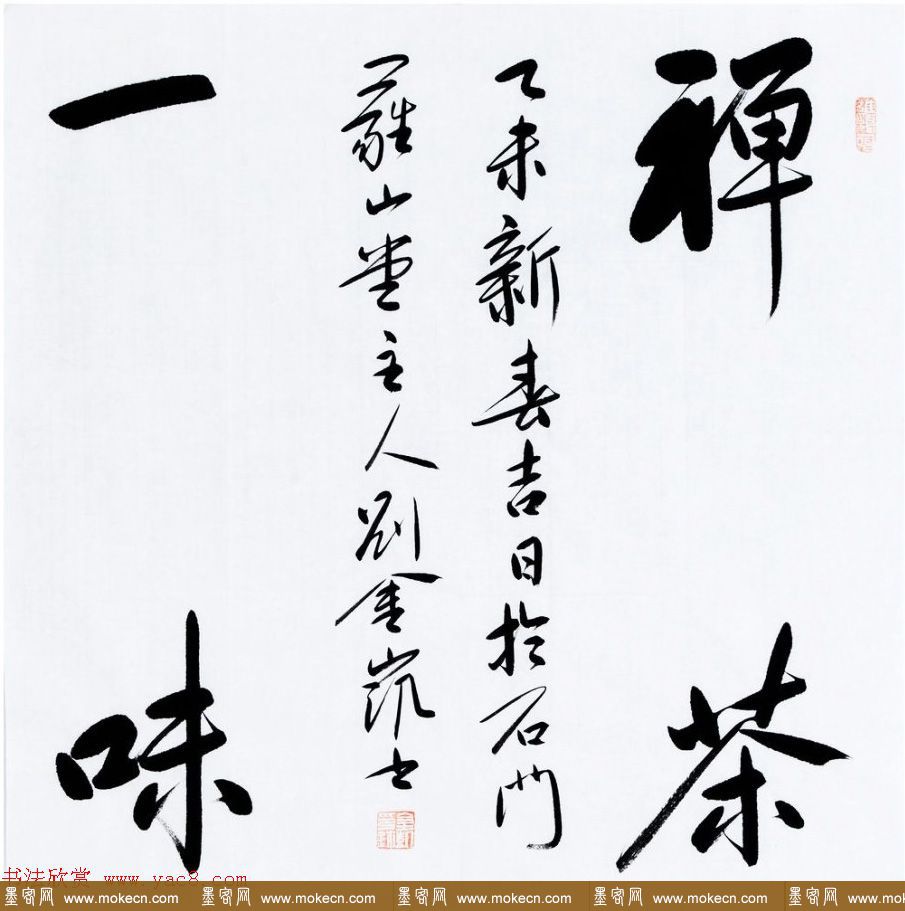 禪茶
乙未新春吉日於石門
山堂主人劉金凱书
一味
书法欣赏 www.yac8.com
墨客网 www.mokecn.com 墨客网 www.mokecn.com 墨客网 www.mokecn.com 墨客网 www.mokecn.com 墨客网 www.mok